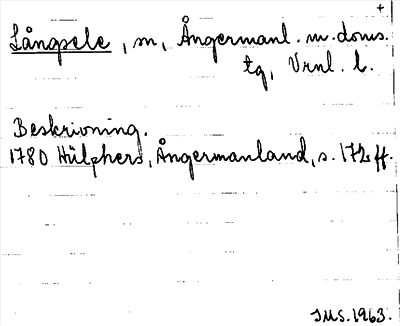 +
Långsele, sn, Ångermanl. m. doms.
tg, Vrnl. l.
Beskrivning.
1780 Hülphers, Ångermanland, s. 172 ff.
JMS. 1963.